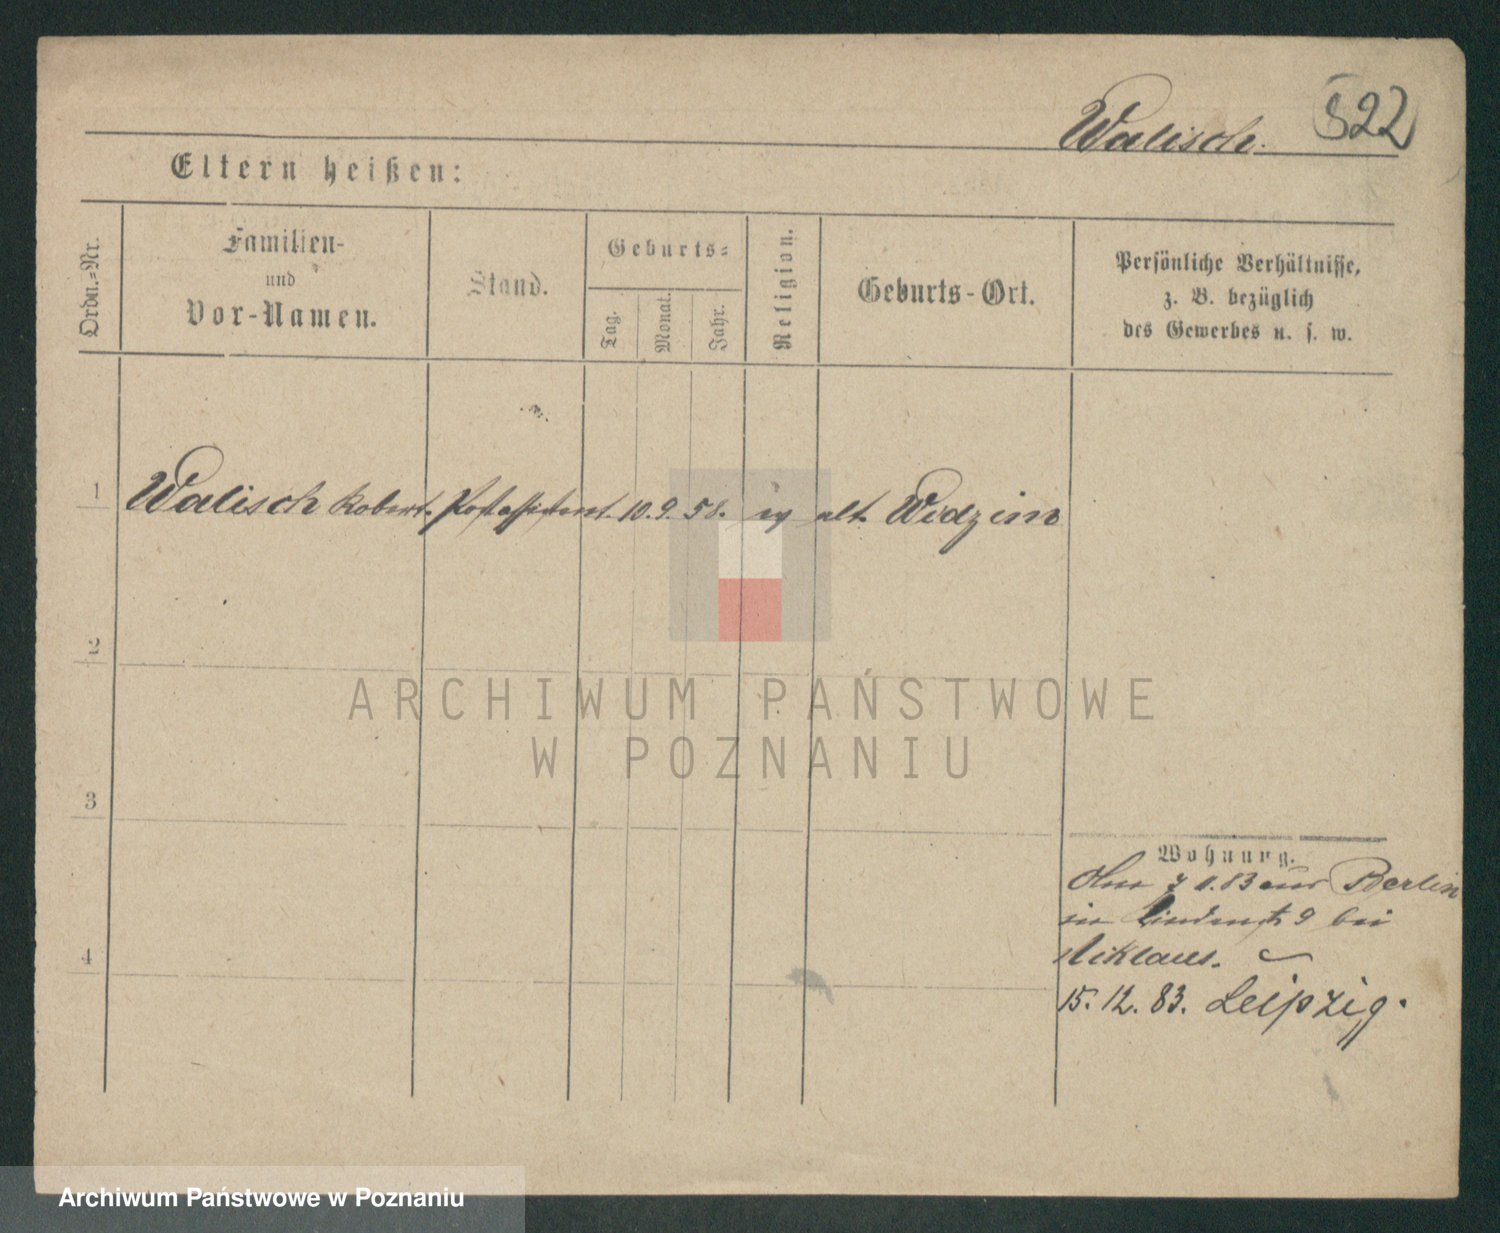 Walisch.
522
Eltern heißen:
Ordn.-Nr.
Familien-
und
Vor-Namen.
Stand.
Geburts-
Tag.
Monat.
Jahr.
Religion.
Geburts-Ort.
Persönliche Verhältnisse,
z. B. bezüglich
des Gewerbes u. s. w.
1 Walisch Robert. Postassistent. 10. 9. 58. alt Widzim
2
3
4
Wohnung.
83 aus Berlin
in Lindenstr 9 bei
Niklaus.
15. 12. 83. Leipzig.
ARCHIWUM PAŃSTWOWE
W POZNANIU
Archiwum Państwowe w Poznaniu